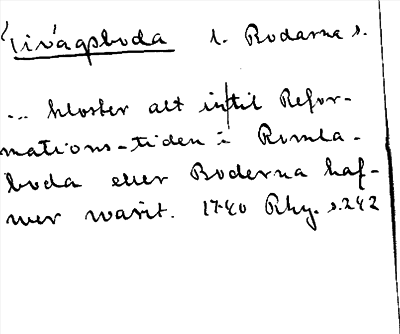 Tivagsboda l. Bodarna s.
... kloster alt intil Refor-
mations-tiden i Romla-
boda eller Boderna haf-
wer warit. 1740 Rhz. s. 242